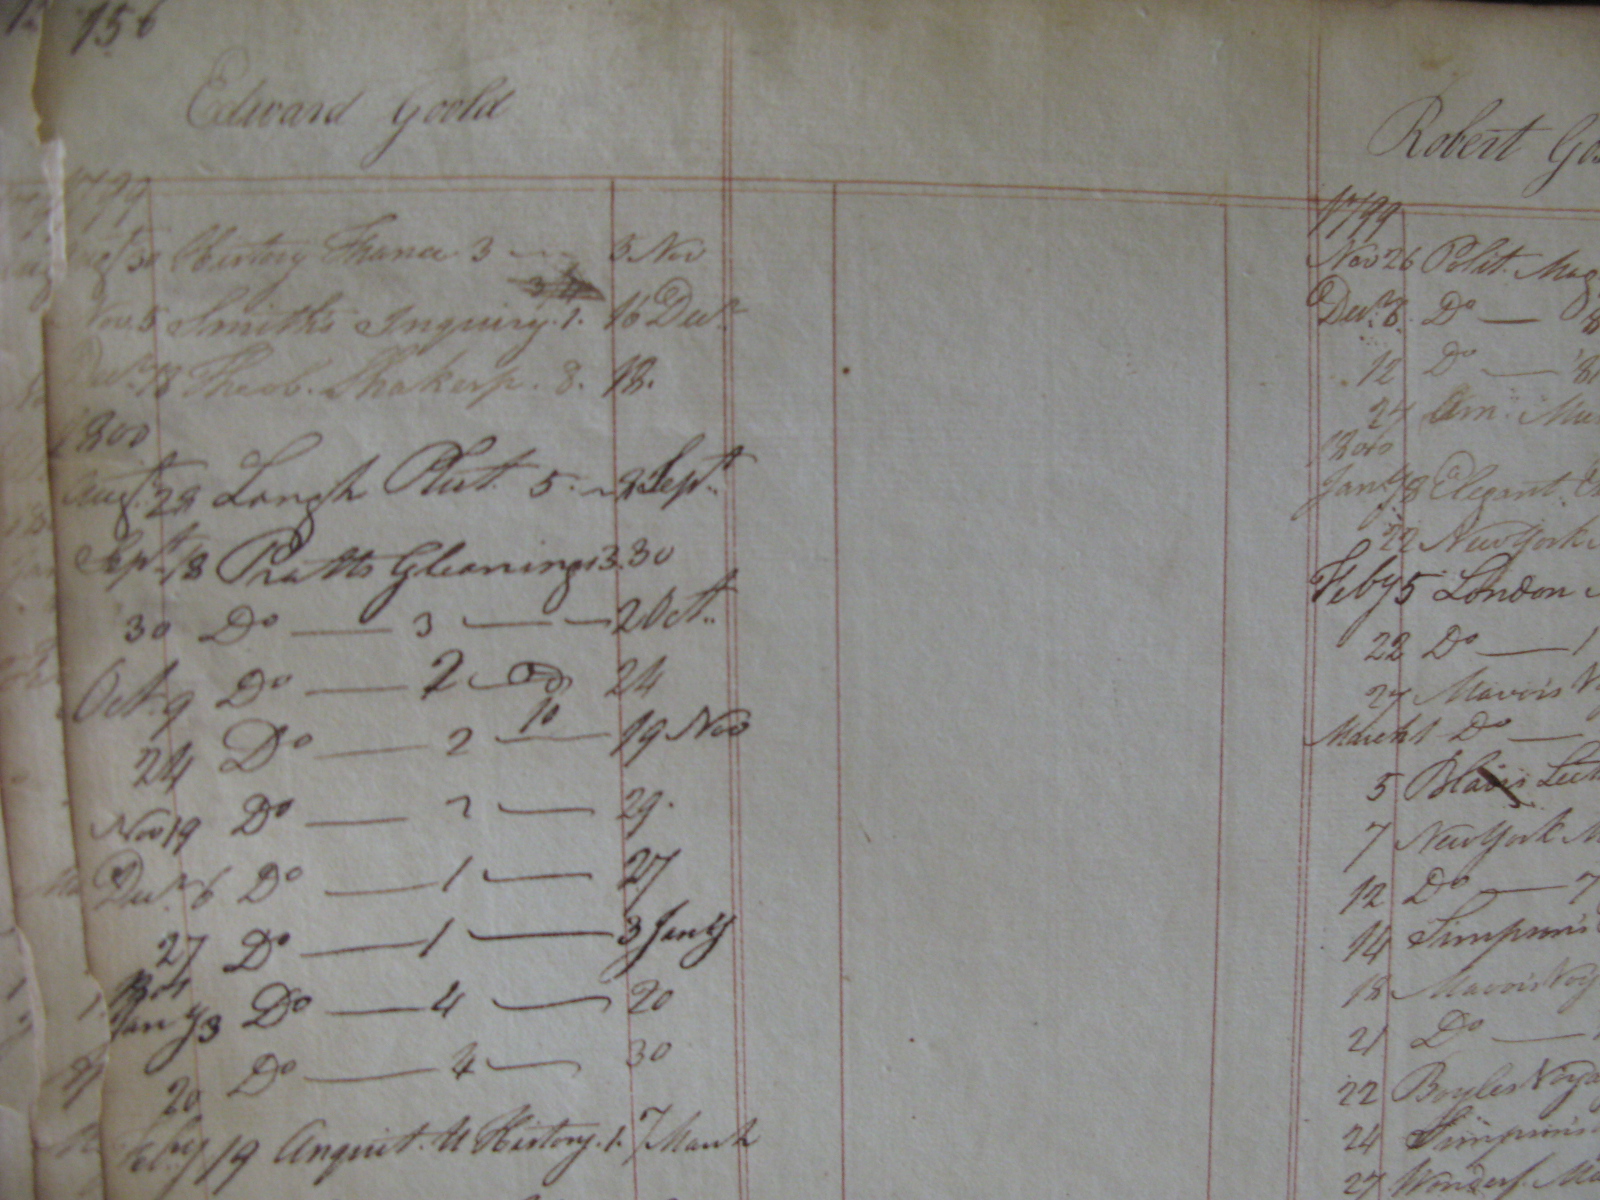 156
Edward Goold
1799
Augt 30 History France 3 — 5 Nov
Nov. 5 Smith's Inquiry. 1. 16 Decr
Decr 18 Theob. Shakesp. 8. 18.
1800
Augt 28 Langh Plut. 5. — Sept.
Sept. 18 Pratts Gleanings 3. 30
30 Do — 3 — 2 Oct.
Oct. 9 Do — 2 — 24
10
24 Do — 2 — 19 Nov
Nov 19 Do — 2 — 29.
Decr 6 Do — 1 — 27
27 Do — 1 — 3 Jany
1801
Jany 3 Do — 4 — 20
20 Do — 4 — 30
Feby 19 Anquit. U History. 1. 7 March
Robert Go
1799
Nov 26 Polit. Mag
Decr. 6. Do — 8
12 Do — 8
24 Am. Mu
1800
Jany 18 Elegant. E
22 New York
Feby 5 London
22 Do — 1
27 Mavors V
March 1 Do —
5 Blairs Lect
7 New York M
12 Do — 7
14 Simpson's
18 Mavors Voy
21 Do —
22 Boyles Voya
24 Simpson's
27 Wonderf. Ma